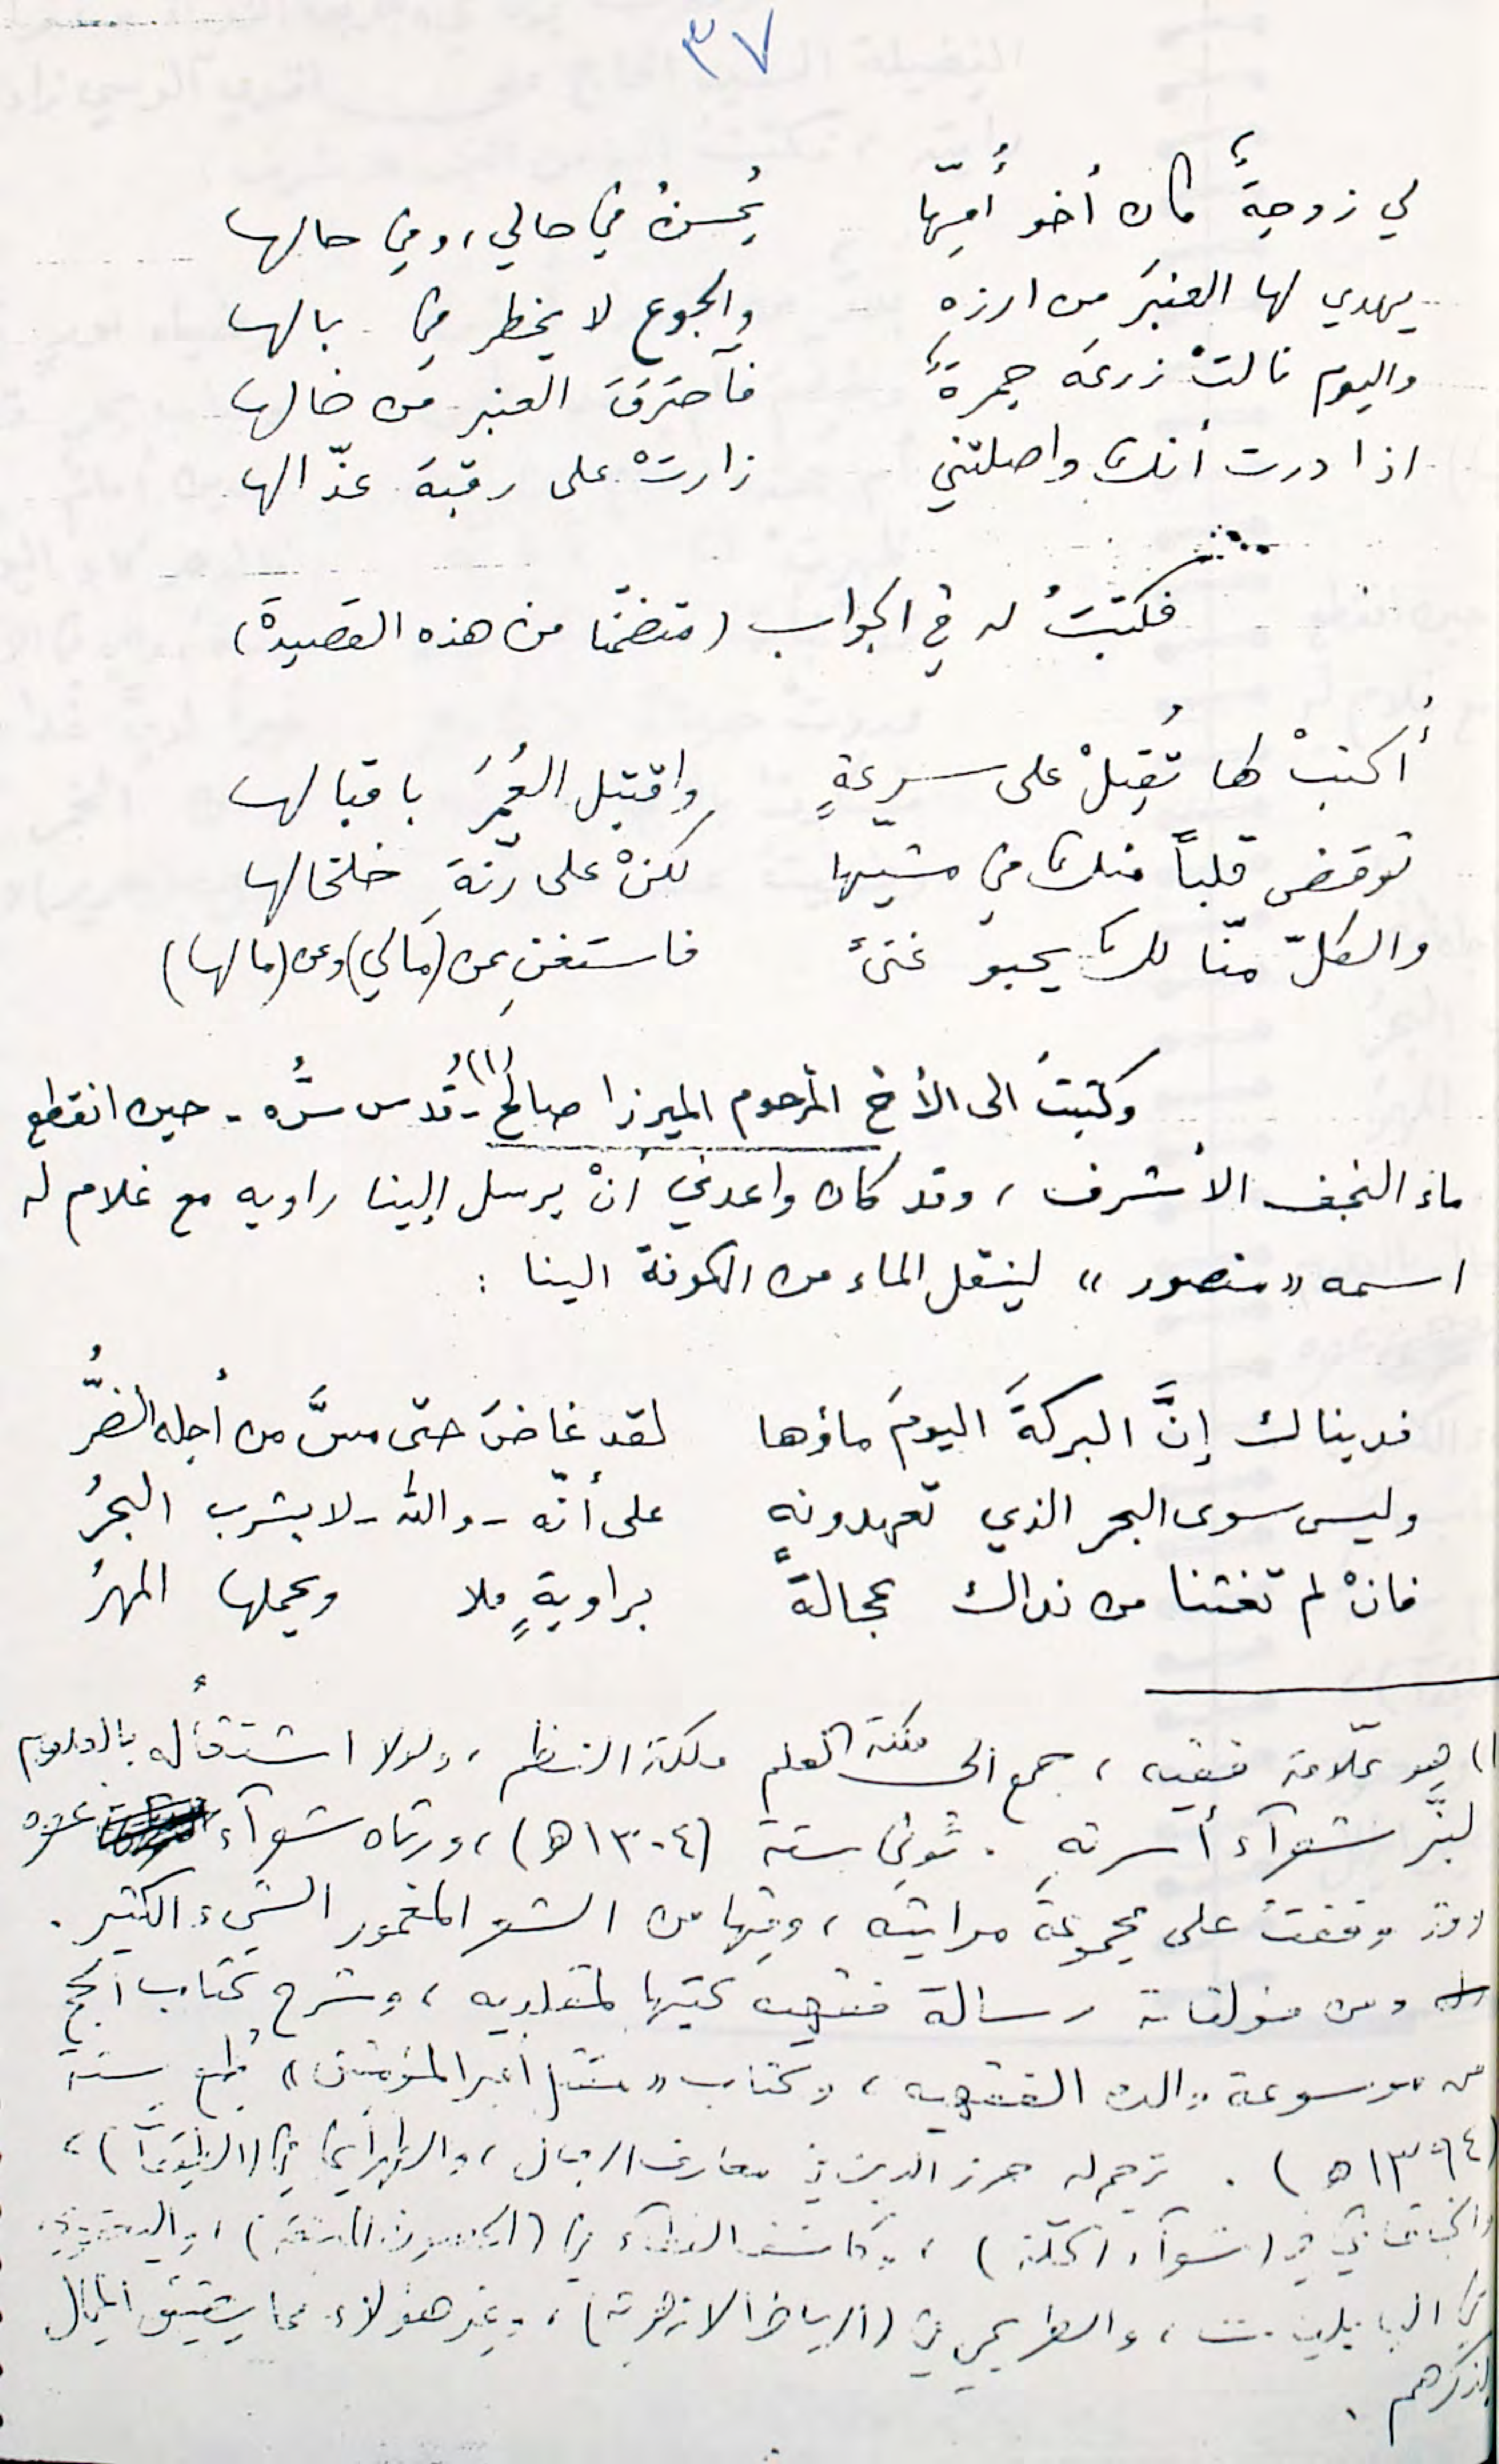 ٣٧
لي زوجةٌ كان أخو أُمِّها يُحسنُ في حالي، وفي حالها
يهدي لها العنبرَ من ارزهِ والجوع لا يخطر في بالها
واليوم نالتْ زرعَه جمرةٌ فآحترَقَ العنبر من خالها
اذا درت أنك واصلتني زارتْ على رقبة عذّالها
فكتبتُ له في الجواب (متضمّنا من هذه القصيدة)
أُكتبْ لها تُقبِلْ على سرعةٍ واقتبل العُمرَ باقبالها
توقضى قلباً منك في مشيها لكنْ على رنّةِ خلخالها
والكلّ منّا لك يحبو غنىً فاستغنِ عن (مالي) وعن (مالها)
وكتبتُ الى الأخ المرحوم الميرزا صالح (١) - قُدس سُّره - حين انقطع
ماء النجف الأشرف، وقد كان واعدني أنْ يرسل إلينا راويه مع غلام له
اسمه «منصور» لينقل الماء من الكوفة الينا :
فديناك إنَّ البركةَ اليومَ ماؤها لقد غاضَ حتى مسَّ من أجله الضرُّ
وليس سوى البحر الذي تعهدونهِ على أنّه - والله - لا يشرب البحرُ
فانْ لم تغثنا من نداك عجالةً براويةٍ ملا ويحملها المهرُ
١) هو علّامة فقيه، جمع الى العلم ملكة النظم، ولولا اشتغاله بالعلوم
لبزَّ شعرآء أسرتهِ. تُوفي سنة (١٣٠٤ هـ)، ورثاه شعرآء عصره
وقد وقفتُ على مجموعة مراثيه، وفيها من الشعر المغمور الشيء الكثير.
ومن مؤلفاته رسالة فقهيه كتبها لمقلديه، وشرح كتاب الحج
من موسوعة والده الفقهيه، وكتاب «مقتل أمير المؤمنين» طُبع سنة
(١٣٩٤ هـ). ترجم له حرز الدين في معارف الرجال، والطهراني في (الطبقات)،
والخاقاني في (شعرآء الحلّة)، وكاشف الغطآء في (الحصون المنيعة)، واليعقوبي
في البابليات، والطريحي في (الرياض الازهرية)، وغير هؤلاء مما يضيق المجال
بذكرهم.